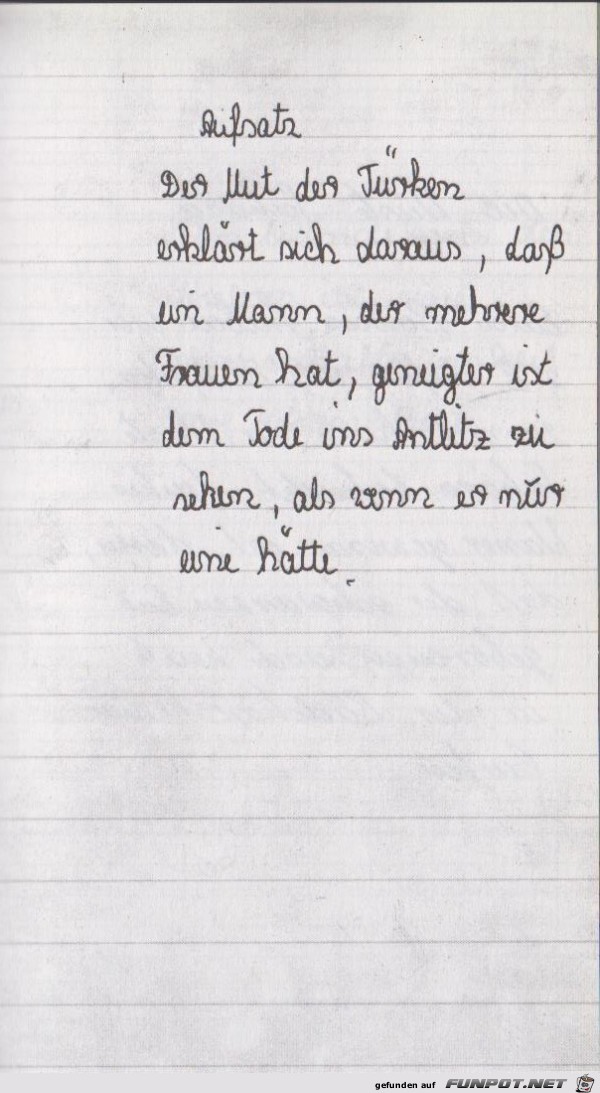 Aufsatz
Der Mut der Türken
erklärt sich daraus, daß
ein Mann, der mehrere
Frauen hat, geneigter ist
dem Tode ins Antlitz zu
sehen, als wenn er nur
eine hätte.
gefunden auf FUNPOT.NET